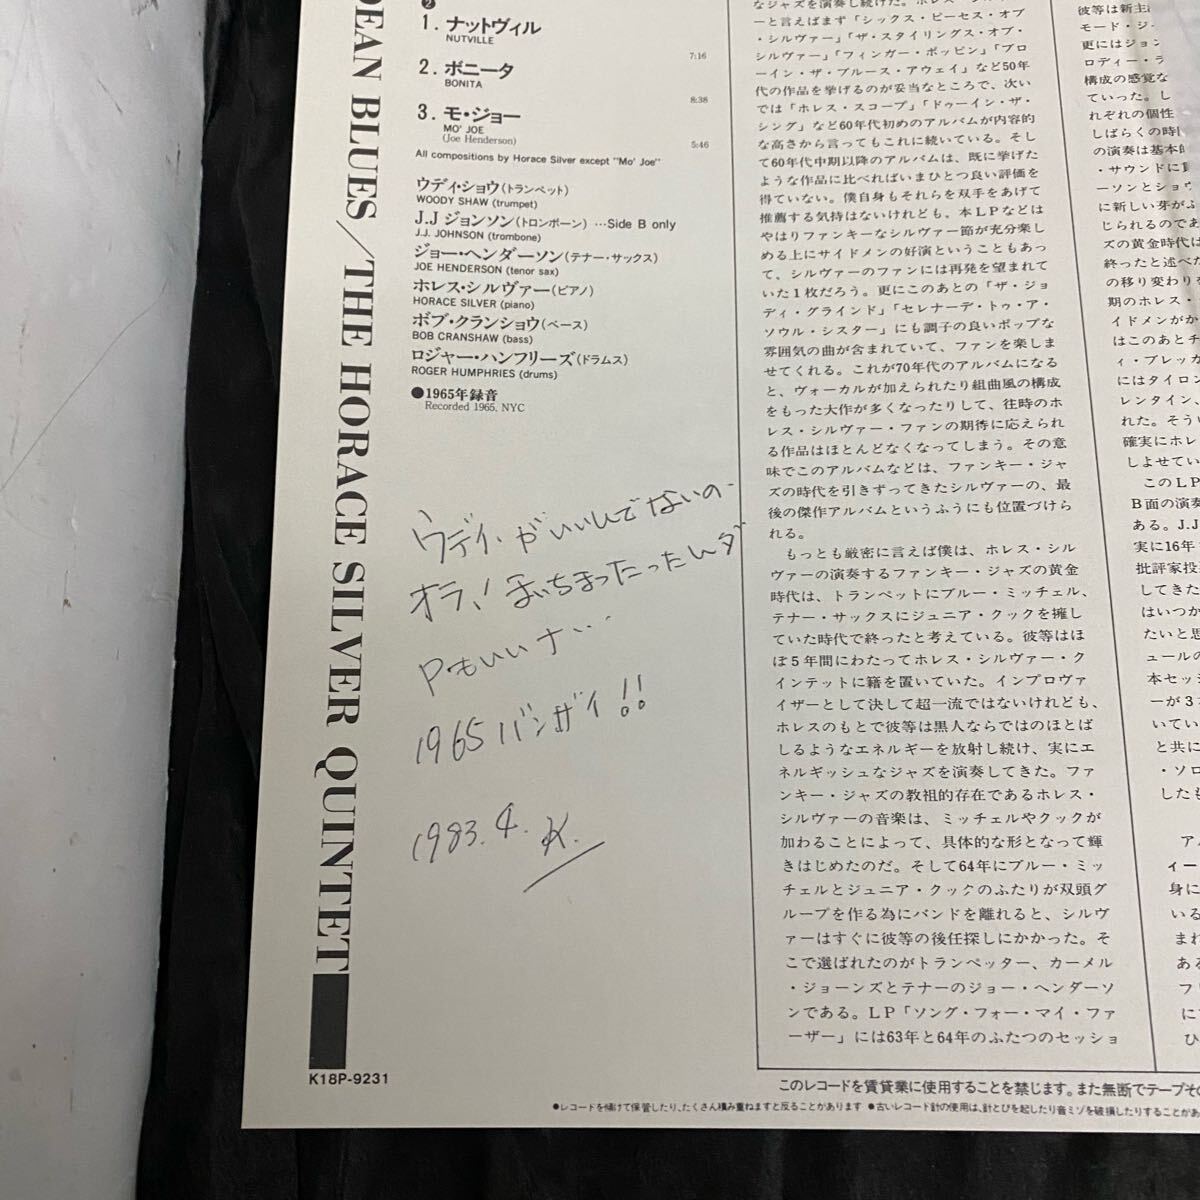 DEAN BLUES/THE HORACE SILVER QUINTET
K18P-9231
❷
1. ナットヴィル
NUTVILLE
7:16
2. ボニータ
BONITA
8:38
3. モ・ジョー
MO' JOE
(Joe Henderson)
5:46
All compositions by Horace Silver except "Mo' Joe"
ウディ・ショウ(トランペット)
WOODY SHAW (trumpet)
J.J ジョンソン(トロンボーン) …Side B only
J.J. JOHNSON (trombone)
ジョー・ヘンダーソン(テナー・サックス)
JOE HENDERSON (tenor sax)
ホレス・シルヴァー(ピアノ)
HORACE SILVER (piano)
ボブ・クランショウ(ベース)
BOB CRANSHAW (bass)
ロジャー・ハンフリーズ(ドラムス)
ROGER HUMPHRIES (drums)
●1965年録音
Recorded 1965, NYC
ウディ、がいいんでないの‥
オラ、! まいちまったったんダ
Pもいいナ…
1965 バンザイ!!
1983. 4. K.
ーと言えばまず「シックス・ピーセス・オブ
・シルヴァー」「ザ・スタイリングス・オブ・
シルヴァー」「フィンガー・ポッピン」「ブロ
ーイン・ザ・ブルース・アウェイ」など50年
代の作品を挙げるのが妥当なところで、次い
では「ホレス・スコープ」「ドゥーイン・ザ・
シング」など60年代初めのアルバムが内容的
な高さから言ってもこれに続いている。そし
て60年代中期以降のアルバムは、既に挙げた
ような作品に比べればいまひとつ良い評価を
得ていない。僕自身もそれらを双手をあげて
推薦する気持はないけれども、本LPなどは
やはりファンキーなシルヴァー節が充分楽し
める上にサイドメンの好演ということもあっ
て、シルヴァーのファンには再発を望まれて
いた1枚だろう。更にこのあとの「ザ・ジョ
ディ・グラインド」「セレナーデ・トゥ・ア・
ソウル・シスター」にも調子の良いポップな
雰囲気の曲が含まれていて、ファンを楽しま
せてくれる。これが70年代のアルバムになる
と、ヴォーカルが加えられたり組曲風の構成
をもった大作が多くなったりして、往時のホ
レス・シルヴァー・ファンの期待に応えられ
る作品はほとんどなくなってしまう。その意
味でこのアルバムなどは、ファンキー・ジャ
ズの時代を引きずってきたシルヴァーの、最
後の傑作アルバムというふうにも位置づけら
れる。
もっとも厳密に言えば僕は、ホレス・シル
ヴァーの演奏するファンキー・ジャズの黄金
時代は、トランペットにブルー・ミッチェル、
テナー・サックスにジュニア・クックを擁し
ていた時代で終ったと考えている。彼等はほ
ぼ5年間にわたってホレス・シルヴァー・ク
インテットに籍を置いていた。インプロヴァ
イザーとして決して超一流ではないけれども、
ホレスのもとで彼等は黒人ならではのほとば
しるようなエネルギーを放射し続け、実にエ
ネルギッシュなジャズを演奏してきた。ファ
ンキー・ジャズの教祖的存在であるホレス・
シルヴァーの音楽は、ミッチェルやクックが
加わることによって、具体的な形となって輝
きはじめたのだ。そして64年にブルー・ミッ
チェルとジュニア・クックのふたりが双頭グ
ループを作る為にバンドを離れると、シルヴ
ァーはすぐに彼等の後任探しにかかった。そ
こで選ばれたのがトランペッター、カーメル
・ジョーンズとテナーのジョー・ヘンダーソ
ンである。LP「ソング・フォー・マイ・ファ
ーザー」には63年と64年のふたつのセッショ
彼等は新主
モード・ジ
更にはジョン
ロディー・ラ
構成の感覚な
ていった。し
れぞれの個性
しばらくの時
の演奏は基本的
・サウンドに
ーソンとショウ
に新しい芽がふ
じられるのであ
ズの黄金時代は
終ったと述べた
の移り変わりを
期のホレス・
イドメンがか
はこのあとチ
ィ・ブレッカ
にはタイロン
レンタイン、
れた。そうい
確実にホレ
しよせてい
このLP
B面の演奏
ある。J.J
実に16年
批評家投
してきた
はいつか
たいと思
ュールの
本セッシ
ーが3
いてい
と共に
・ソロ
したも
ア
ィー
身に
いる
まれ
ある
フ
に
ひ
このレコードを賃貸業に使用することを禁じます。また無断でテープその
●レコードを傾けて保管したり、たくさん積み重ねますと反ることがあります ●古いレコード針の使用は、針とびを起したり音ミゾを破損したりすることがあ